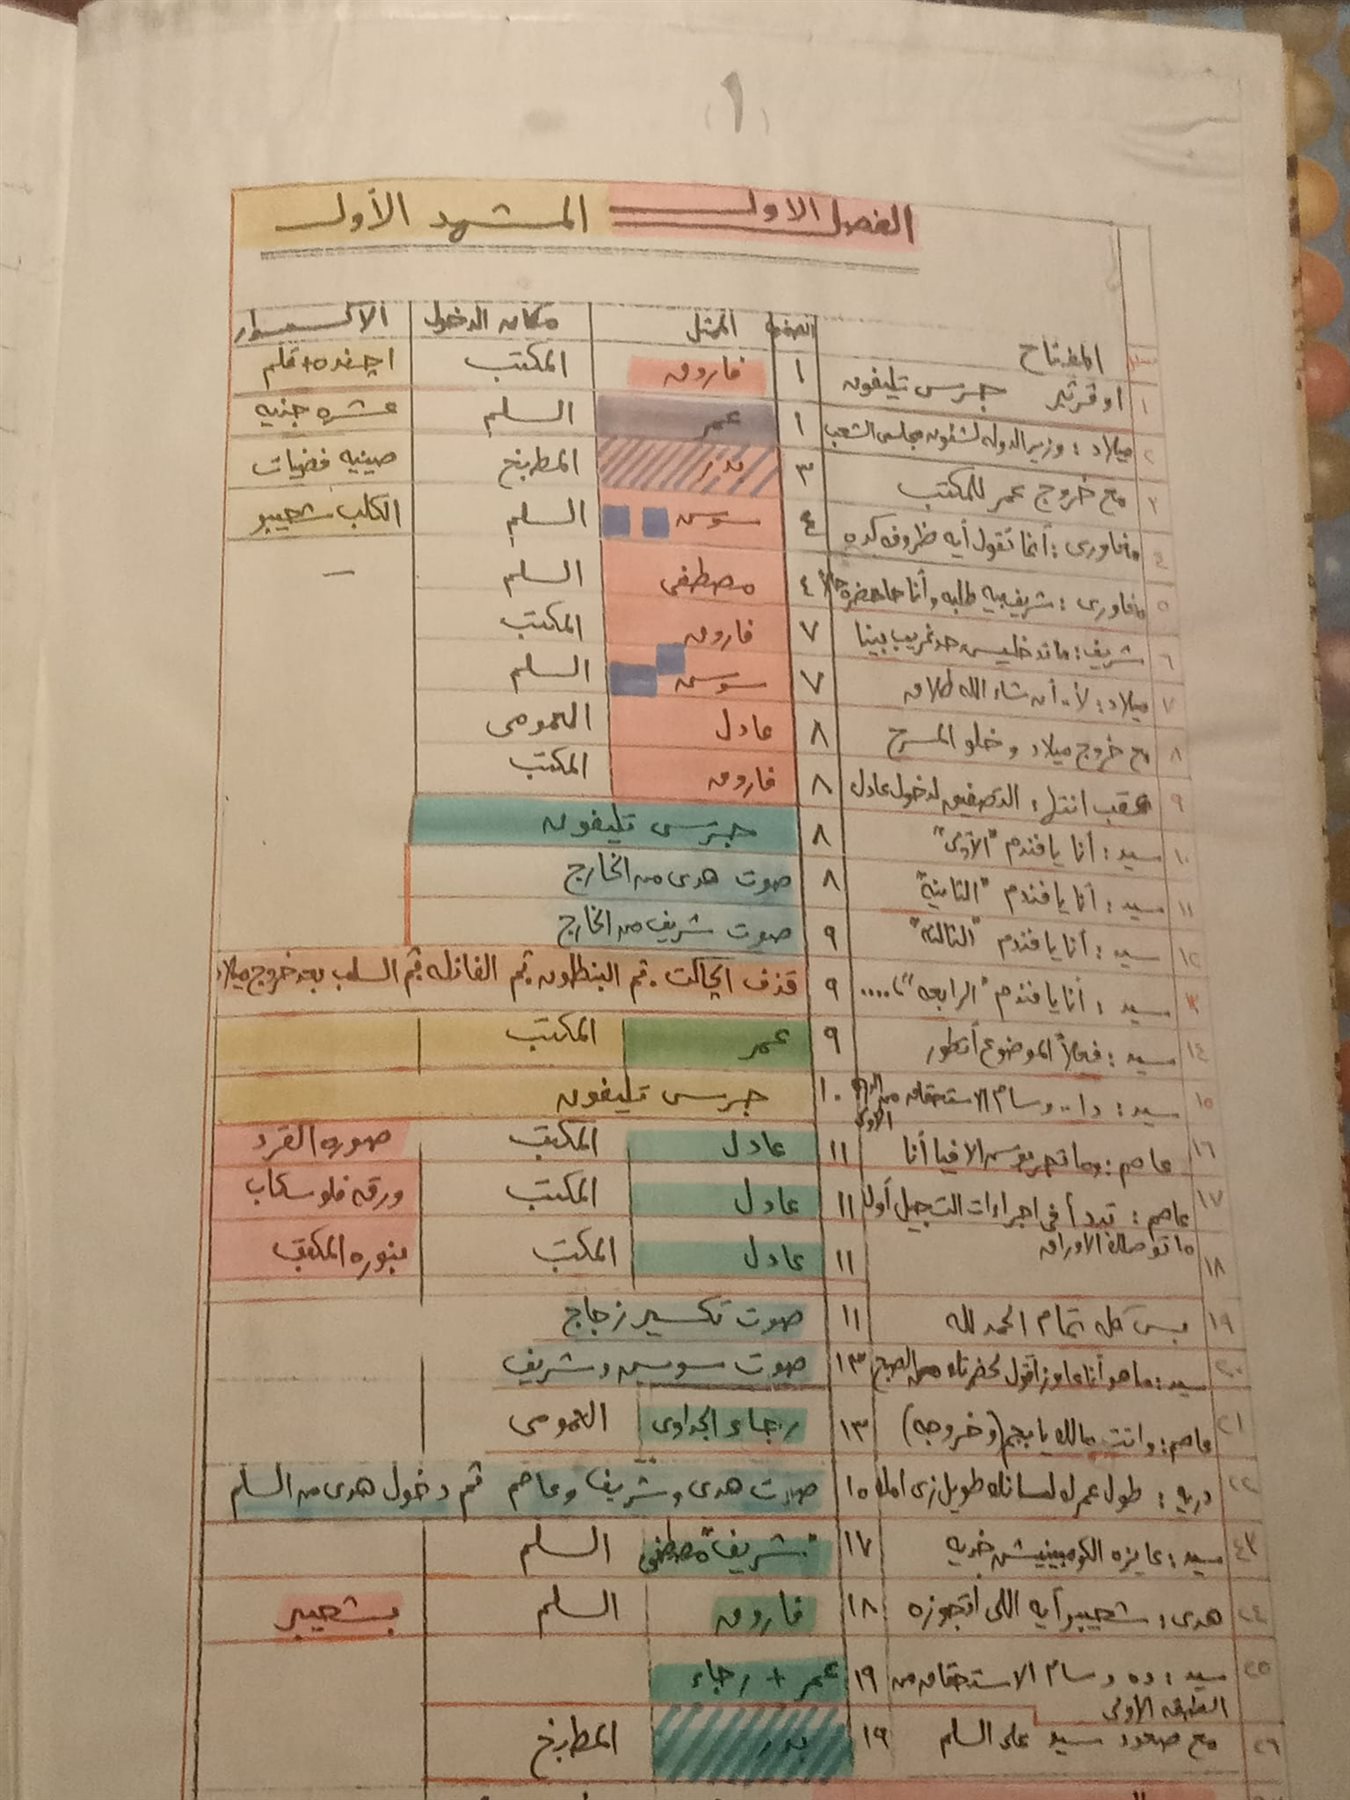 (١)
الفصل الاول المشهد الأول
المفتاح الصفحة الممثل مكان الدخول الاكسسوار
١ اوفرتير جرس تليفون ١ فاروق المكتب اجنده+قلم
٢ ميلاد : وزير الدولة لشئون مجلس الشعب ١ عمر السلم عشره جنيه
٣ مع خروج عمر للمكتب ٣ بدر المطبخ صينيه فضيات
٤ مغاورى : أنما تقول أيه ظروفه كده ٤ سوسن السلم الكلب شعيبر
٥ مغاورى : شريف بيه طلبه وأنا حاحضره ٤ مصطفى السلم —
٦ شريف : ماتدخليش حد غريب بينا ٧ فاروق المكتب
٧ ميلاد : لأ.. أن شاء الله طلاق ٧ سوسن السلم
٨ مع خروج ميلاد وخلو المسرح ٨ عادل العمومى
٩ عقب انتهاء التصفيق لدخول عادل ٨ فاروق المكتب
١٠ سيد : أنا يا فندم "الأولى" ٨ جرس تليفون
١١ سيد : أنا يا فندم "الثانية" ٨ صوت هدى من الخارج
١٢ سيد : أنا يا فندم "الثالثه" ٩ صوت شريف من الخارج
١٣ سيد : أنا يا فندم "الرابعه" .... ٩ قذف الچاكت . ثم البنطلون . ثم الفانله ثم السلب بعد خروج ميلاد
١٤ سيد : فعلاً الموضوع أتطور ٩ عمر المكتب
١٥ سيد : دا.. وسام الاستحقاق من الاولى ١٠ جرس تليفون
١٦ عاصم : وماتجريوش الا فيا أنا ١١ عادل المكتب صوره القرد
١٧ عاصم : تبدأ فى اجراءات التسجيل أول ١١ عادل المكتب ورقه فلوسكاب
ماتوصلك الاوراق
١٨ ١١ عادل المكتب بنوره المكتب
١٩ بس كله تمام الحمد لله ١١ صوت تكسير زجاج
٢٠ سيد : ما هو أنا عاوز أقول لحضرتك من الصبح ١٣ صوت سوسن وشريف
٢١ عاصم : وانت مالك يا بجم (وخروجه) ١٣ رجاء الجداوى العمومى
٢٢ دريه : طول عمرك لسانك طويل زى امك ١٥ صوت هدى وشريف وعاصم ثم دخول هدى من السلم
٢٣ سيد : عايزه الكومبينيشن خديه ١٧ شريف "مصطفى" السلم
٢٤ هدى : شعيبر أيه اللى أتجوزه ١٨ فاروق السلم بشعيبر
٢٥ سيد : ده وسام الاستحقاق من ١٩ عمر + رجاء
الطبقه الأولى
٢٦ مع صعود سيد على السلم ١٩ بدر المطبخ